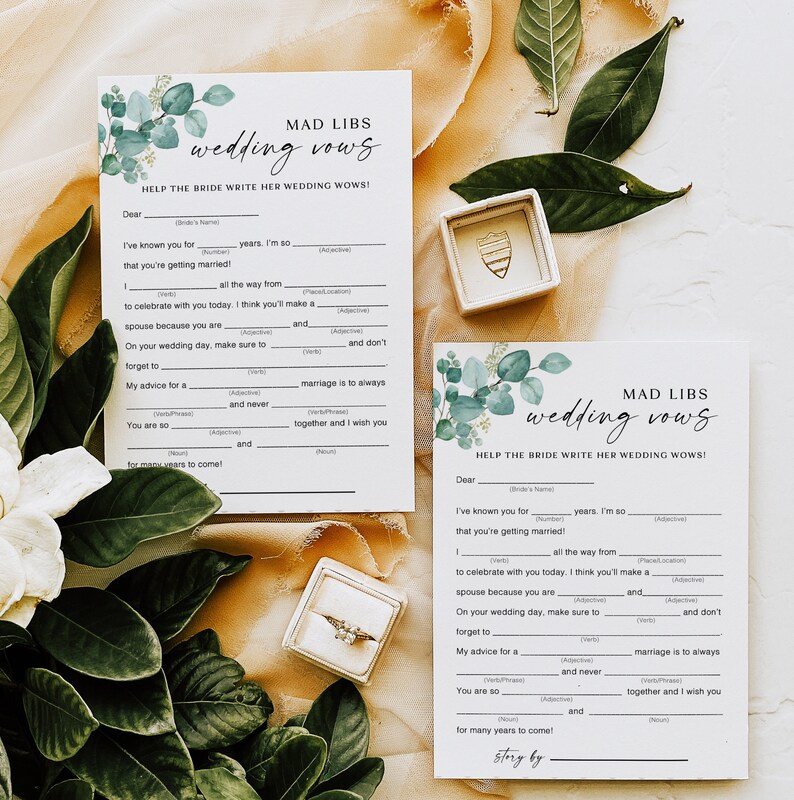 MAD LIBS
wedding vows
HELP THE BRIDE WRITE HER WEDDING WOWS!
Dear ____________
(Bride's Name)
I've known you for ________ years. I'm so ____________
(Number) (Adjective)
that you're getting married!
I ____________ all the way from ____________
(Verb) (Place/Location)
to celebrate with you today. I think you'll make a ____________
(Adjective)
spouse because you are ____________ and____________
(Adjective) (Adjective)
On your wedding day, make sure to ____________ and don't
(Verb)
forget to ____________.
(Verb)
My advice for a ____________ marriage is to always
(Adjective)
____________ and never ____________
(Verb/Phrase) (Verb/Phrase)
You are so ____________ together and I wish you
(Adjective)
____________ and ____________
(Noun) (Noun)
for many years to come!
MAD LIBS
wedding vows
HELP THE BRIDE WRITE HER WEDDING WOWS!
Dear ____________
(Bride's Name)
I've known you for ________ years. I'm so ____________
(Number) (Adjective)
that you're getting married!
I ____________ all the way from ____________
(Verb) (Place/Location)
to celebrate with you today. I think you'll make a ____________
(Adjective)
spouse because you are ____________ and____________
(Adjective) (Adjective)
On your wedding day, make sure to ____________ and don't
(Verb)
forget to ____________.
(Verb)
My advice for a ____________ marriage is to always
(Adjective)
____________ and never ____________
(Verb/Phrase) (Verb/Phrase)
You are so ____________ together and I wish you
(Adjective)
____________ and ____________
(Noun) (Noun)
for many years to come!
story by ____________